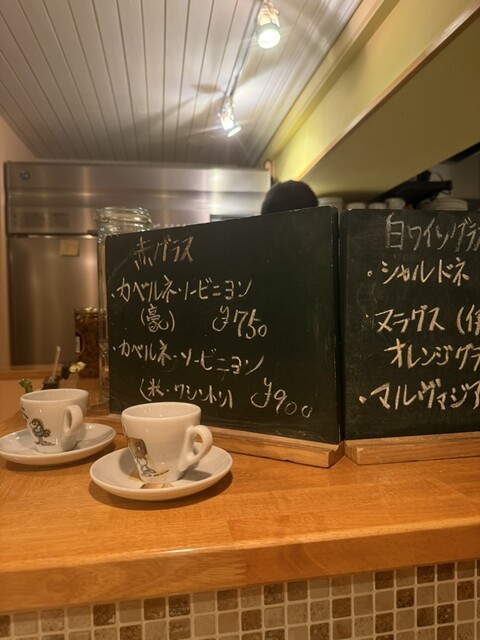 赤グラス
・カベルネ・ソービニヨン
(豪) ¥750
・カベルネ・ソービニヨン
(米・ワシントン) ¥900
白ワイングラス
・シャルドネ
・ヌラグス(伊
オレンジグラ
・マルヴァジア